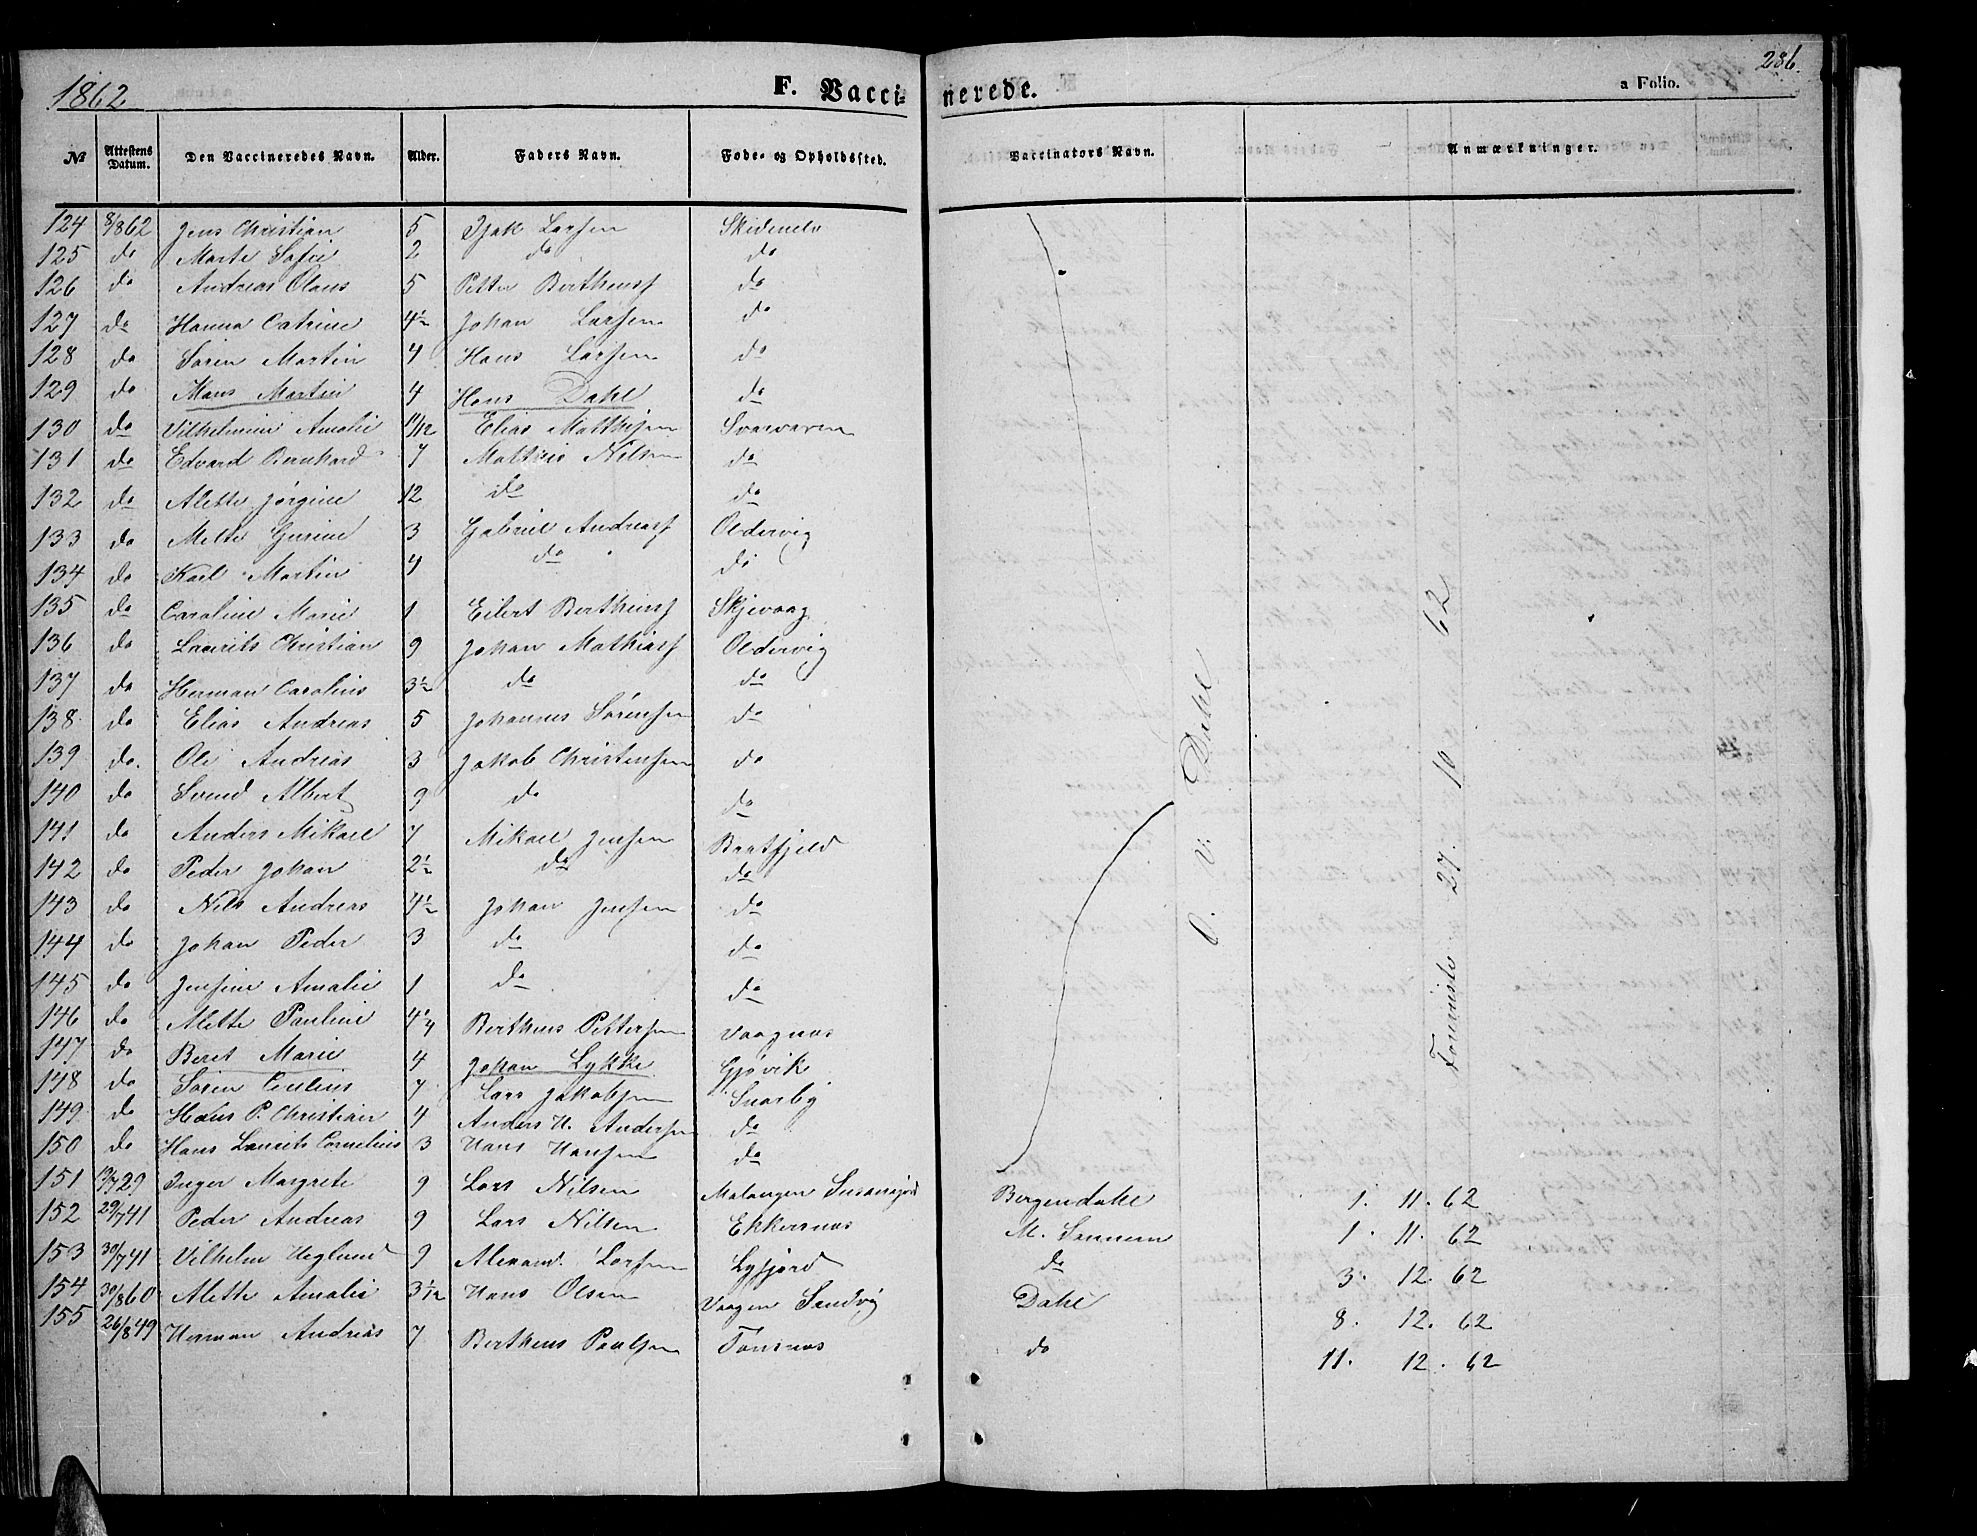 1862 F. Vaccinerede. a Folio. 286.
№ Attestens Datum. Den Vaccineredes Navn. Alder. Faders Navn. Føde- og Opholdssted. Vaccinators Navn. Anmærkninger.
124 8/862 Jens Christian 5 Isak Larsen
125 do Marte Sofie 2 do do
126 do Andreas Olaus 5 Petter Berthens do
127 do Hanna Catrine 4½ Johan Larsen do
128 do Søren Martin 4 Hans Larsen do
129 do Hans Martin 4 Hans Dahl do
130 do Vilhelmine Amalie 11/12 Elias Matthisen Svarvaren
131 do Edvard Bernhard 7 Mathis Nilsen do
132 do Alette Jørgine 12 do do
133 do Mette Gurine 3 Gabriel Andreasf Oldervig
134 do Karl Martin 4 do do
135 do Caroline Marie 1 Eilert Berthensf Skjevaag
136 do Laurits Christian 9 Johan Mathiasf Oldervig
137 do Herman Carolius 3½ do do
138 do Elias Andreas 5 Johannes Sørensen do
139 do. Ole Andreas 3 Jakob Christensen do
140 do Svend Albert 9 do do
141 do Anders Mikael 7 Mikael Jensen Bratfjeld
142 do Peder Johan 2½ do do
143 do Nils Andreas 4½ Johan Jensen do
144 do Johan Peder 3 do do
145 do Jensine Amalie 1 do do
146 do Alette Pauline 4¼ Berthens Pettersen Vaagnas
147 do Beret Marie 4 Johan Lykke Gjøvik
148 do Søren 7 Lars Jakobsen Snarby
149 do Hans P. Christian 4 Anders H. Andersen do
150 do Hans Laurits Cornelius 3 Hans Hansen do
O. v. Dahl
27. 10 62
151 13/729 Inger Margrete 9 Lars Nilsen Malangen Bergendahl 1. 11. 62
152 29/741 Peder Andreas 9 Lars Nilsen Ekkernas M. 1. 11. 62
153 30/741 Vilhelm Heglund 9 Alexand. Larsen Lysjord do 3. 12. 62
154 30/860 Alette Amalie 3 1/12 Hans Olsen Vaagen Sandvig Dahl 8. 12. 62
155 26/849 Herman Andreas 7 Berthens Paulsen Tønsnas do 11. 12. 62